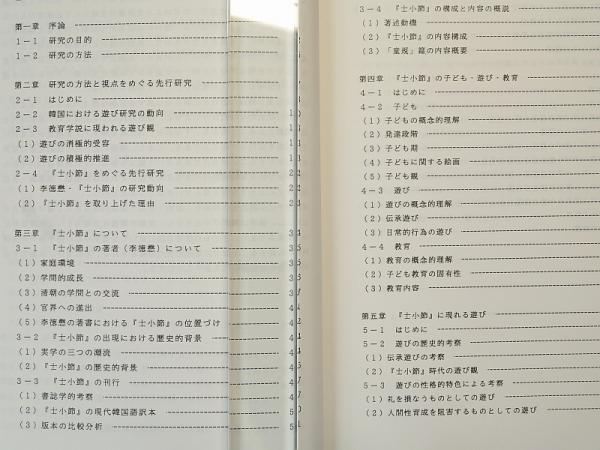 第一章　序論
1－1　研究の目的
1－2　研究の方法
第二章　研究の方法と視点をめぐる先行研究
2－1　はじめに
2－2　韓国における遊び研究の動向
2－3　教育学説に現われる遊び観
（1）遊びの消極的受容
（2）遊びの積極的推進
2－4　『士小節』をめぐる先行研究
（1）李徳懋・『士小節』の研究動向
（2）『士小節』を取り上げた理由
第三章　『士小節』について
3－1　『士小節』の著者（李徳懋）について
（1）家庭環境
（2）学問的成長
（3）清朝の学問との交流
（4）官界への進出
（5）李徳懋の著書における『士小節』の位置づけ
3－2　『士小節』の出現における歴史的背景
（1）実学の三つの源流
（2）『士小節』の歴史的背景
3－3　『士小節』の刊行
（1）書誌学的考察
（2）『士小節』の現代韓国語訳本
（3）版本の比較分析
3－4　『士小節』の構成と内容の概説
（1）著述動機
（2）『士小節』の内容構成
（3）「童規」篇の内容概要
第四章　『士小節』の子ども・遊び・教育
4－1　はじめに
4－2　子ども
（1）子どもの概念的理解
（2）発達段階
（3）子ども期
（4）子どもに関する絵画
（5）子ども観
4－3　遊び
（1）遊びの概念的理解
（2）伝承遊び
（3）日常的行為の遊び
4－4　教育
（1）教育の概念的理解
（2）子ども教育の固有性
（3）教育内容
第五章　『士小節』に現れる遊び
5－1　はじめに
5－2　遊びの歴史的考察
（1）伝承遊びの考察
（2）『士小節』時代の遊び観
5－3　遊びの性格的特色による考察
（1）礼を損なうものとしての遊び
（2）人間性育成を阻害するものとしての遊び